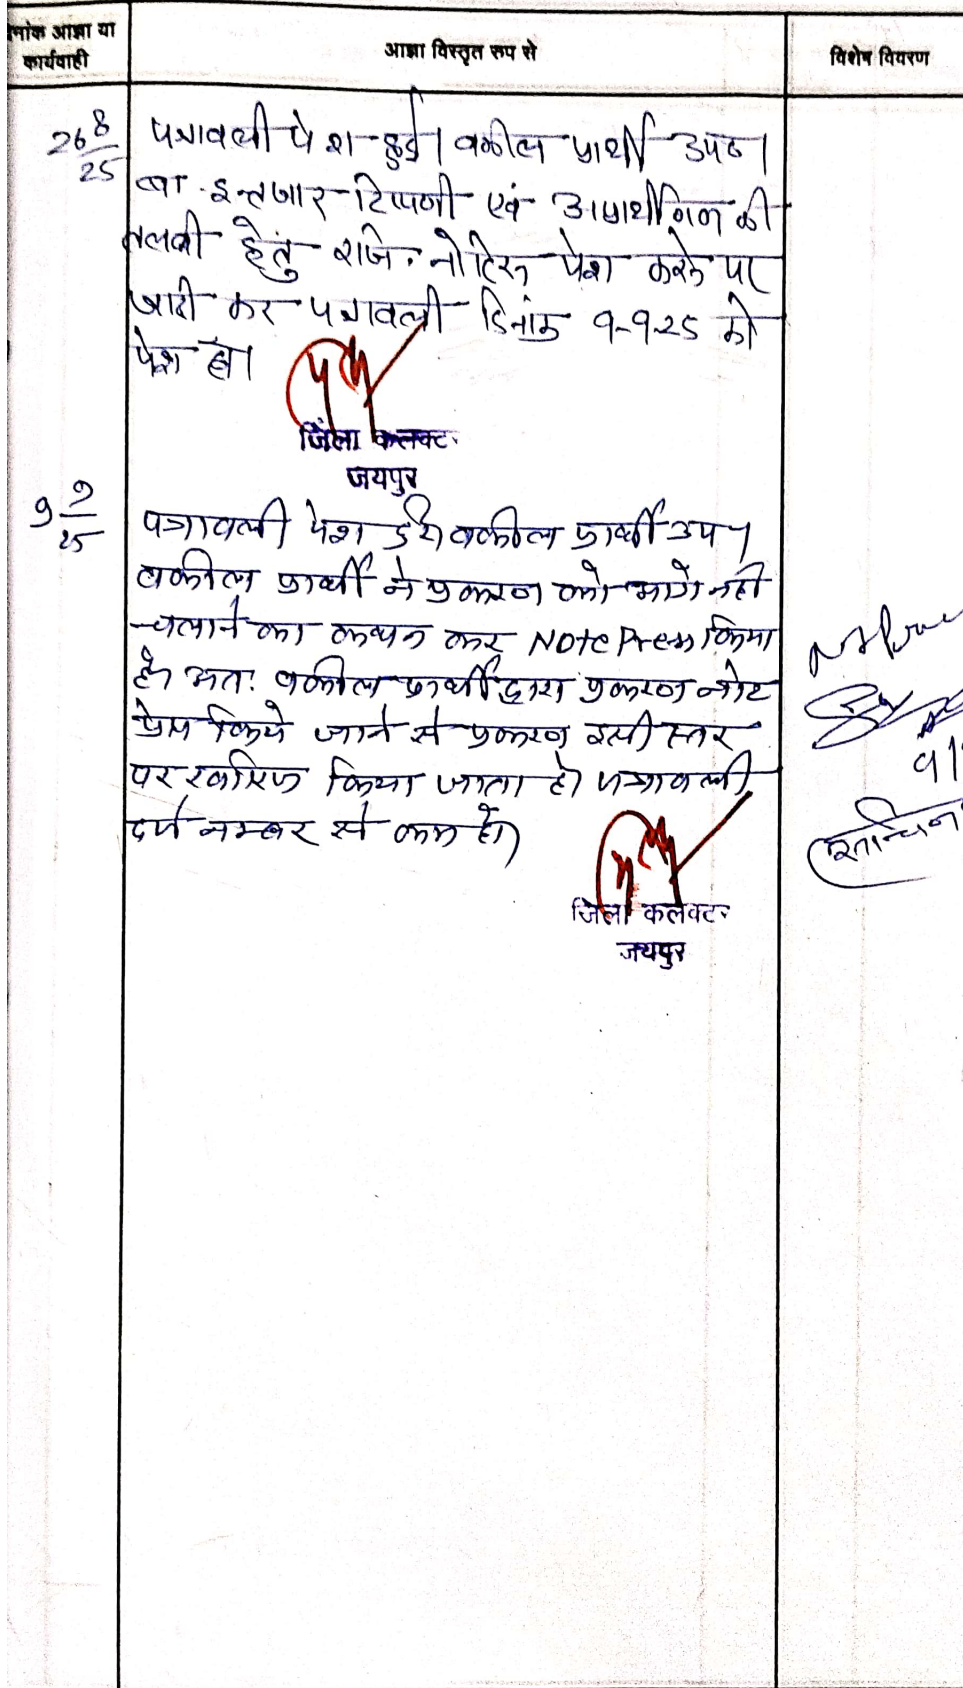 नांक आज्ञा या
कार्यवाही
आज्ञा विस्तृत रूप से
विशेष विवरण
26 8/25
पत्रावली पेश हुई। वकील प्रार्थी उप०।
बा इन्तजार टिप्पणी एवं अप्रार्थीगण की
तलबी हेतु रजि. नोटिस पेश करने पर
जारी कर पत्रावली दिनांक 9-9-25 को
पेश हो।
जिला कलक्टर
जयपुर
9 9/25
पत्रावली पेश हुई। वकील प्रार्थी उप०
वकील प्रार्थी ने प्रकरण को आगे नहीं
चलाने का कथन कर Note Press किया
है। अतः वकील प्रार्थी द्वारा प्रकरण नोट
प्रेस किये जाने से प्रकरण इसी स्तर
पर खारिज किया जाता है। पत्रावली
दर्ज नम्बर से कम हो।
जिला कलक्टर
जयपुर